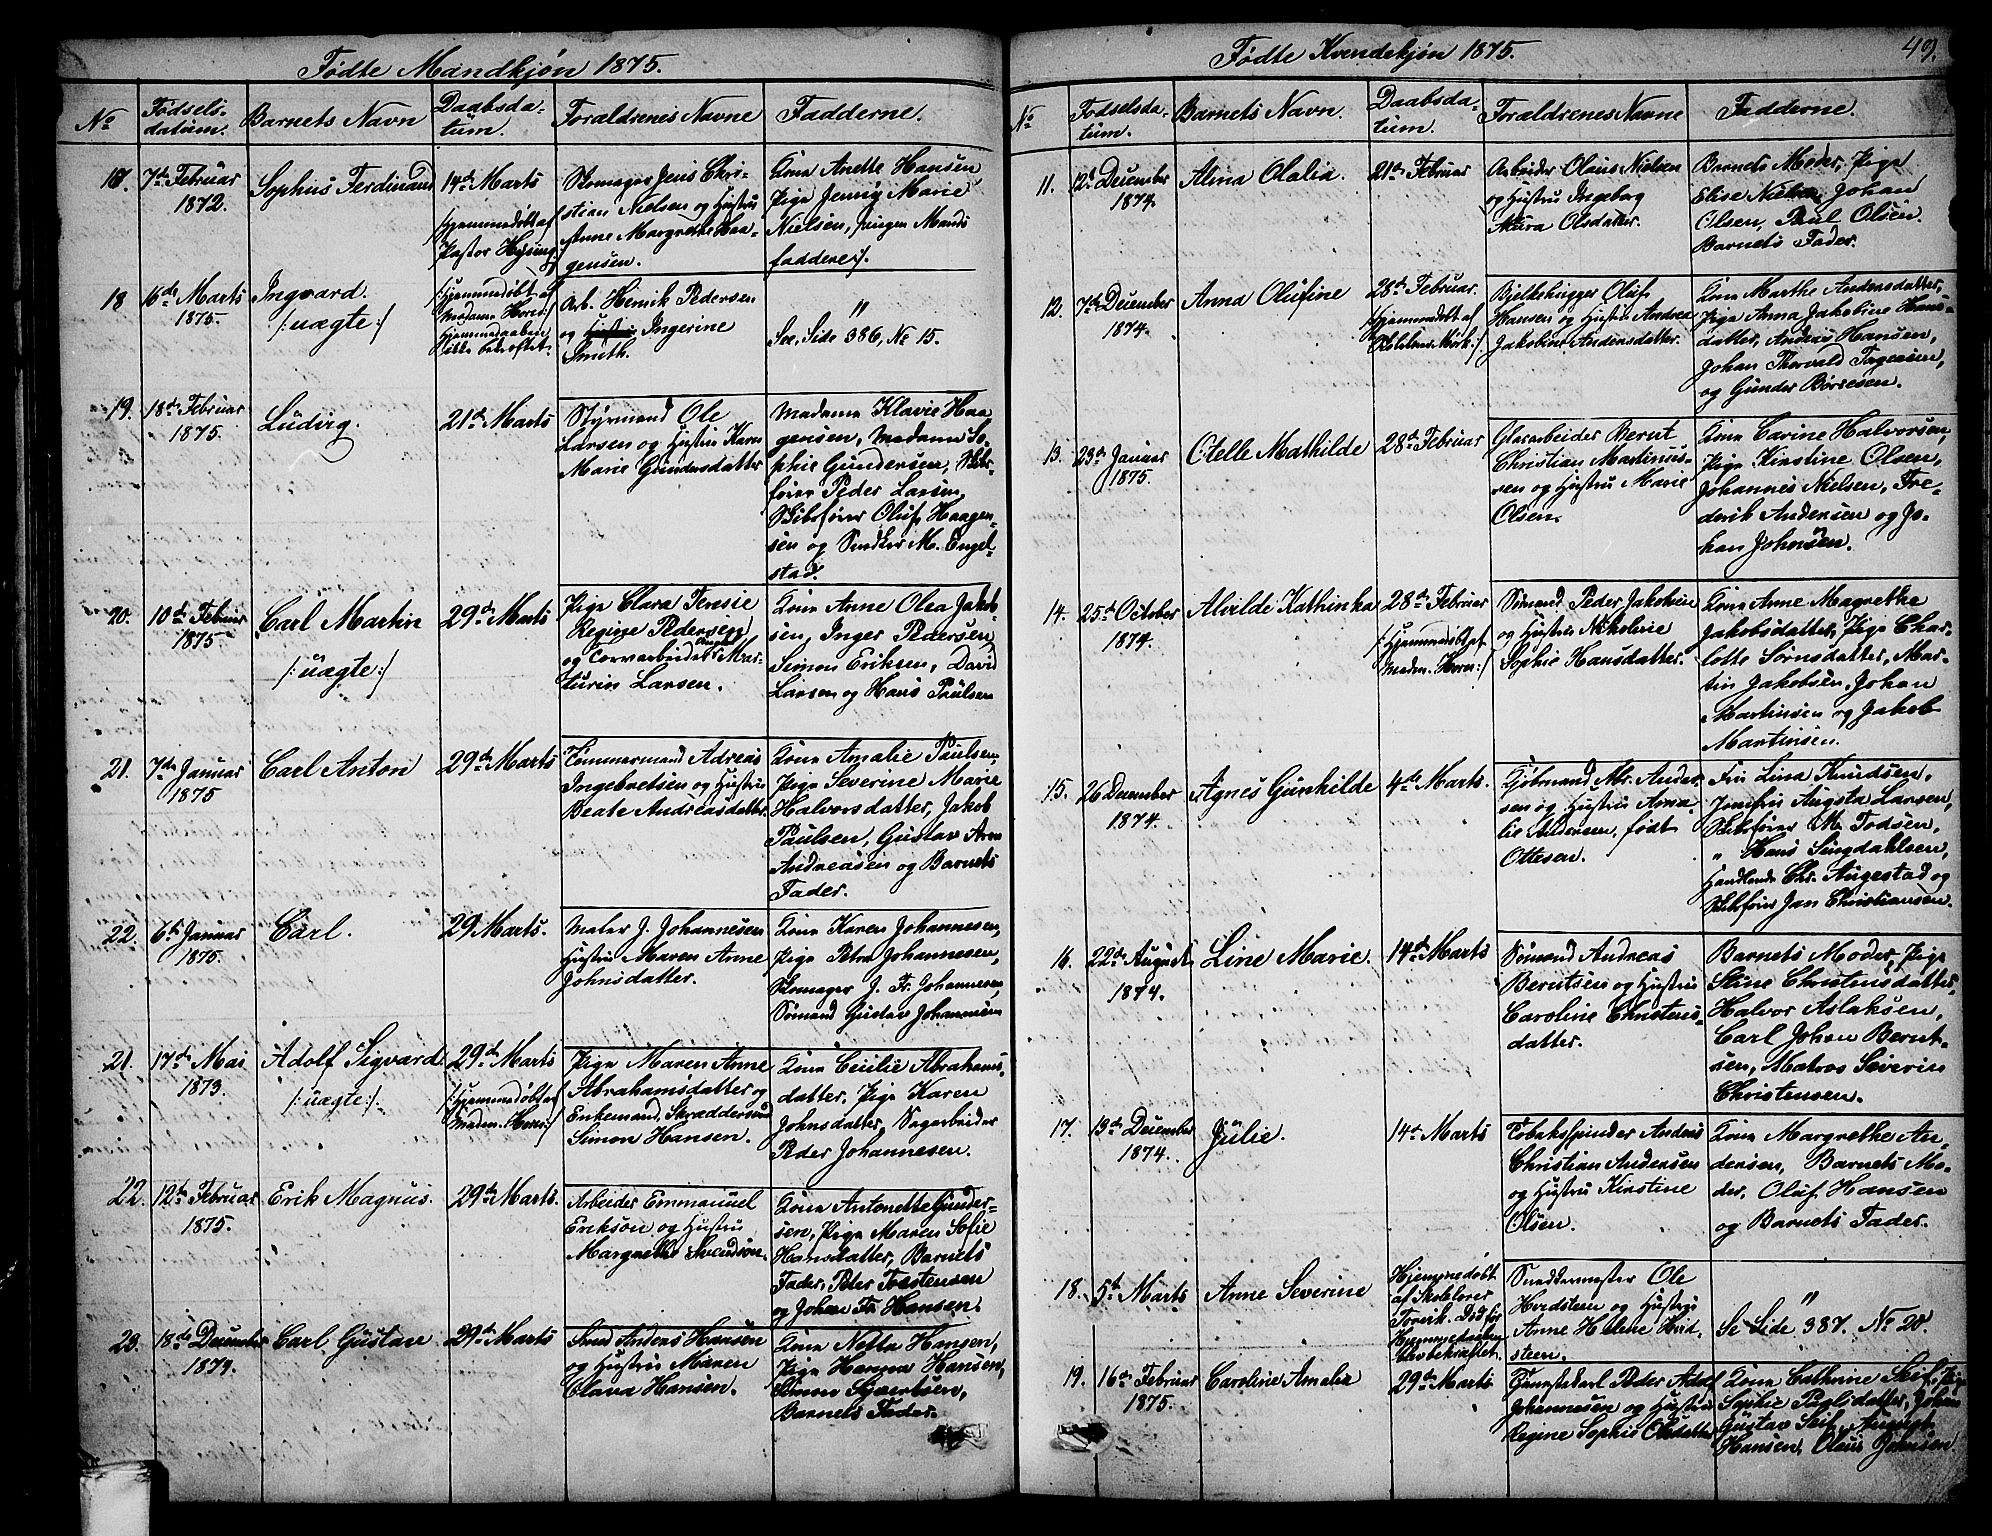 Fødte Mandkjøn 1875.
No
Fødsels-
datum.
Barnets Navn
Daabsda-
tum.
Forældrenes Navne
Fadderne.
17.
7de Februar
1872.
Sophus Ferdinand
14de Marts
/:hjemmedøbt af
Pastor Hysing:/
Skomager Jens Chri-
stian Nielsen og Hustru
Anne Margrethe Haa-
gensen.
Kona Anette Hansen
Pige Jenny Marie
Nielsen, /:ingen Mands
faddere:/.
18
16de Marts
1875.
Ingvard.
/:uægte:/
/:hjemmedøbt af
Madame Horn:/
Hjemmedaaben
ikke bekræftet.
Arb. Henrik Pedersen
og Hustru Ingerine
Smith.
"
See Side 386, No 15.
19.
18de Februar
1875.
Ludvig.
21de Marts
Styrmand Ole
Larsen og Hustru Karen
Marie Gundersdatter
Madame Klavie Haa
gensen, Madame So-
phie Gundersen, Skibs-
fører Peder Larsen,
Skibsfører Oluf Haagen-
sen og Snedker M. Engel-
stad.
20.
10de Februar
1875
Carl Martin
/:uægte:/
29de Marts
Pige Clara Teresie
Regine Pedersen
og Torvarbeider Mar-
turin Larsen.
Kona Anne Olea Jakob-
sen, Inger Pedersen,
Simon Eriksen, David
Larsen og Hans Paulsen
21.
7de Januar
1875
Carl Anton
29de Marts
Tømmermand Adreas
Ingebretsen og Hustru
Beate Andreasdatter
Kona Amalie Paulsen,
Pige Severine Marie
Halvorsdatter, Jakob
Paulsen, Gustav Aron
Andreasen og Barnets
Fader.
22.
6te Januar
1875.
Carl.
29 Marts.
Maler J. Johannesen
Hustru Maren Anne
Johnsdatter.
Kona Karen Johannesen,
Pige Petra Johannesen,
Skomager J. Fr. Johannesen,
Sømand Gustav Johannesen
21.
17de Mai
1873.
Adolf Sigvard
/:uægte:/.
29de Marts
/:hjemmedøbt af
Madm. Horn:/
Pige Maren Anne
Abrahamsdatter og
Enkemand, Skræddersvend
Simon Hansen.
Kona Cecilie Abrahams-
datter, Pige Karen
Johnsdatter, Sagarbeider
Peder Johannesen.
22.
12te Februar
1875.
Erik Magnus.
29de Marts.
Arbeider Emmanuel
Erikson og Hustru
Margrethe Svendson.
Kona Antonette Gunder-
sen, Pige Maren Sofie
Hansdatter, Barnets
Fader, Peder Torstensen
og Johan Fr. Hansen.
23.
18de December
1874.
Carl Gustav
29de Marts
Smed Anders Hansen
og Hustru Maren
Olava Hansen.
Kona Netta Hansen,
Pige Hanna Hansen,
Simon Syvertsen,
Barnets Fader.
Fødte Kvendekjøn 1875.
49.
No
Fødselsda-
tum.
Barnets Navn.
Daabsda-
tum.
Forældrenes Navne
Fadderne.
11.
12te December
1874.
Alma Olalia.
21de Februar
Arbeider Olaus Nielsen
og Hustru Ingeborg
Maria Olsdatter.
Barnets Moder, Pige
Elise Nielsen, Johan
Olsen, Paul Olsen.
Barnets Fader.
12.
7de December
1874.
Anna Olufine
28de Februar.
/:hjemmedøbt af
Skolelærer Mørk:/
Bjelkehugger Oluf
Hansen og Hustru Andrea
Jakobine Andersdatter.
Kona Marthe Andersdatter,
Pige Anna Jakobine Hans-
datter, Anders Hansen,
Johan Thorvald Torgersen,
og Gunder Børresen.
13.
23de Januar
1875.
Otelle Mathilde
28de Februar
Glasarbeider Bernt
Christian Martinius-
sen og Hustru Marie
Olsen.
Kona Carine Halvorsen,
Pige Kirstine Olsen,
Johannes Nielsen, Fre-
derik Andersen og Jo-
han Johnsen.
14.
25de October
1874.
Alvilde Kathinka
28de Februar
/:hjemmedøbt af
Madm. Horn:/
Sømand Peder Jakobsen
og Hustru Nikoline
Sophie Hansdatter.
Kona Anne Magrethe
Jakobsdatter, Pige Char-
lotte Sørnsdatter, Mar-
tin Jakobsen, Johan
Martinsen og Jakob
Martinsen.
15.
26 December
1874.
Agnes Gunhilde
4de Marts.
Kjøbmand Mr. Ander-
sen og Hustru Ama-
lie Andersen, født
Ottesen.
Frk Lina Knudsen,
Jomfru Augsta Larsen,
Skibsfører M. Todsen,
" Hans Singdahlsen,
Handlende Chr. Augestad og
Skibsfører Jan Christiansen.
16.
22de August
1874.
Line Marie.
14de Marts
Sømand Andreas
Berntsen og Hustru
Caroline Christens-
datter.
Barnets Moder, Pige
Stine Christensdatter,
Halvor Aslaksen,
Carl Johan Bernt-
sen, Matros Severin
Christensen.
17.
13de December
1874.
Julie.
14de Marts
Tobakspinder Anders
Christian Andersen
og Hustru Kirstine
Olsen.
Kona Margrethe An-
dersen, Barnets Mo-
der, Oluf Hansen
og Barnets Fader.
18.
5te Marts
Anne Severine
Hjemmedøbt
af Skolelærer
Torvik. Død før
Hjemmedaaben
blev bekræftet.
Snedkermester Ole
Hvidsteen og Hustru
Anne Helene Hvid-
steen.
"
Se Side 387. No 20.
19.
16de Februar
1875.
Caroline Amalia
29de Marts
Tjenestekarl Peder Adolf
Johannesen og Hustru
Regine Sophie Olsdatter
Kona Cathrine Skif, Pige
Sophie Pegls datter, Johan
Gustav Skif, August
Hansen, Olaus Johnsen